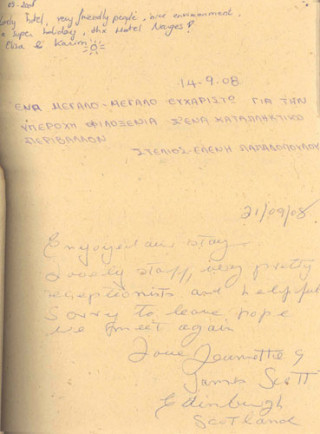 very friendly people, nice environment,
super holiday, thx Hotel
14-9-08
ΕΝΑ ΜΕΓΑΛΟ-ΜΕΓΑΛΟ ΕΥΧΑΡΙΣΤΩ ΓΙΑ ΤΗΝ
ΥΠΕΡΟΧΗ ΦΙΛΟΞΕΝΙΑ Σ'ΕΝΑ ΚΑΤΑΠΛΗΚΤΙΚΟ
ΠΕΡΙΒΑΛΛΟΝ
ΣΤΕΛΙΟΣ-ΕΛΕΝΗ ΠΑΠΑΔΟΠΟΥΛΟΥ
21/09/08
Enjoyed our stay
Lovely staff, very pretty
receptionists and helpful
Sorry to leave hope
we meet again
Love Jeanette &
James Scott
Edinburgh
Scotland